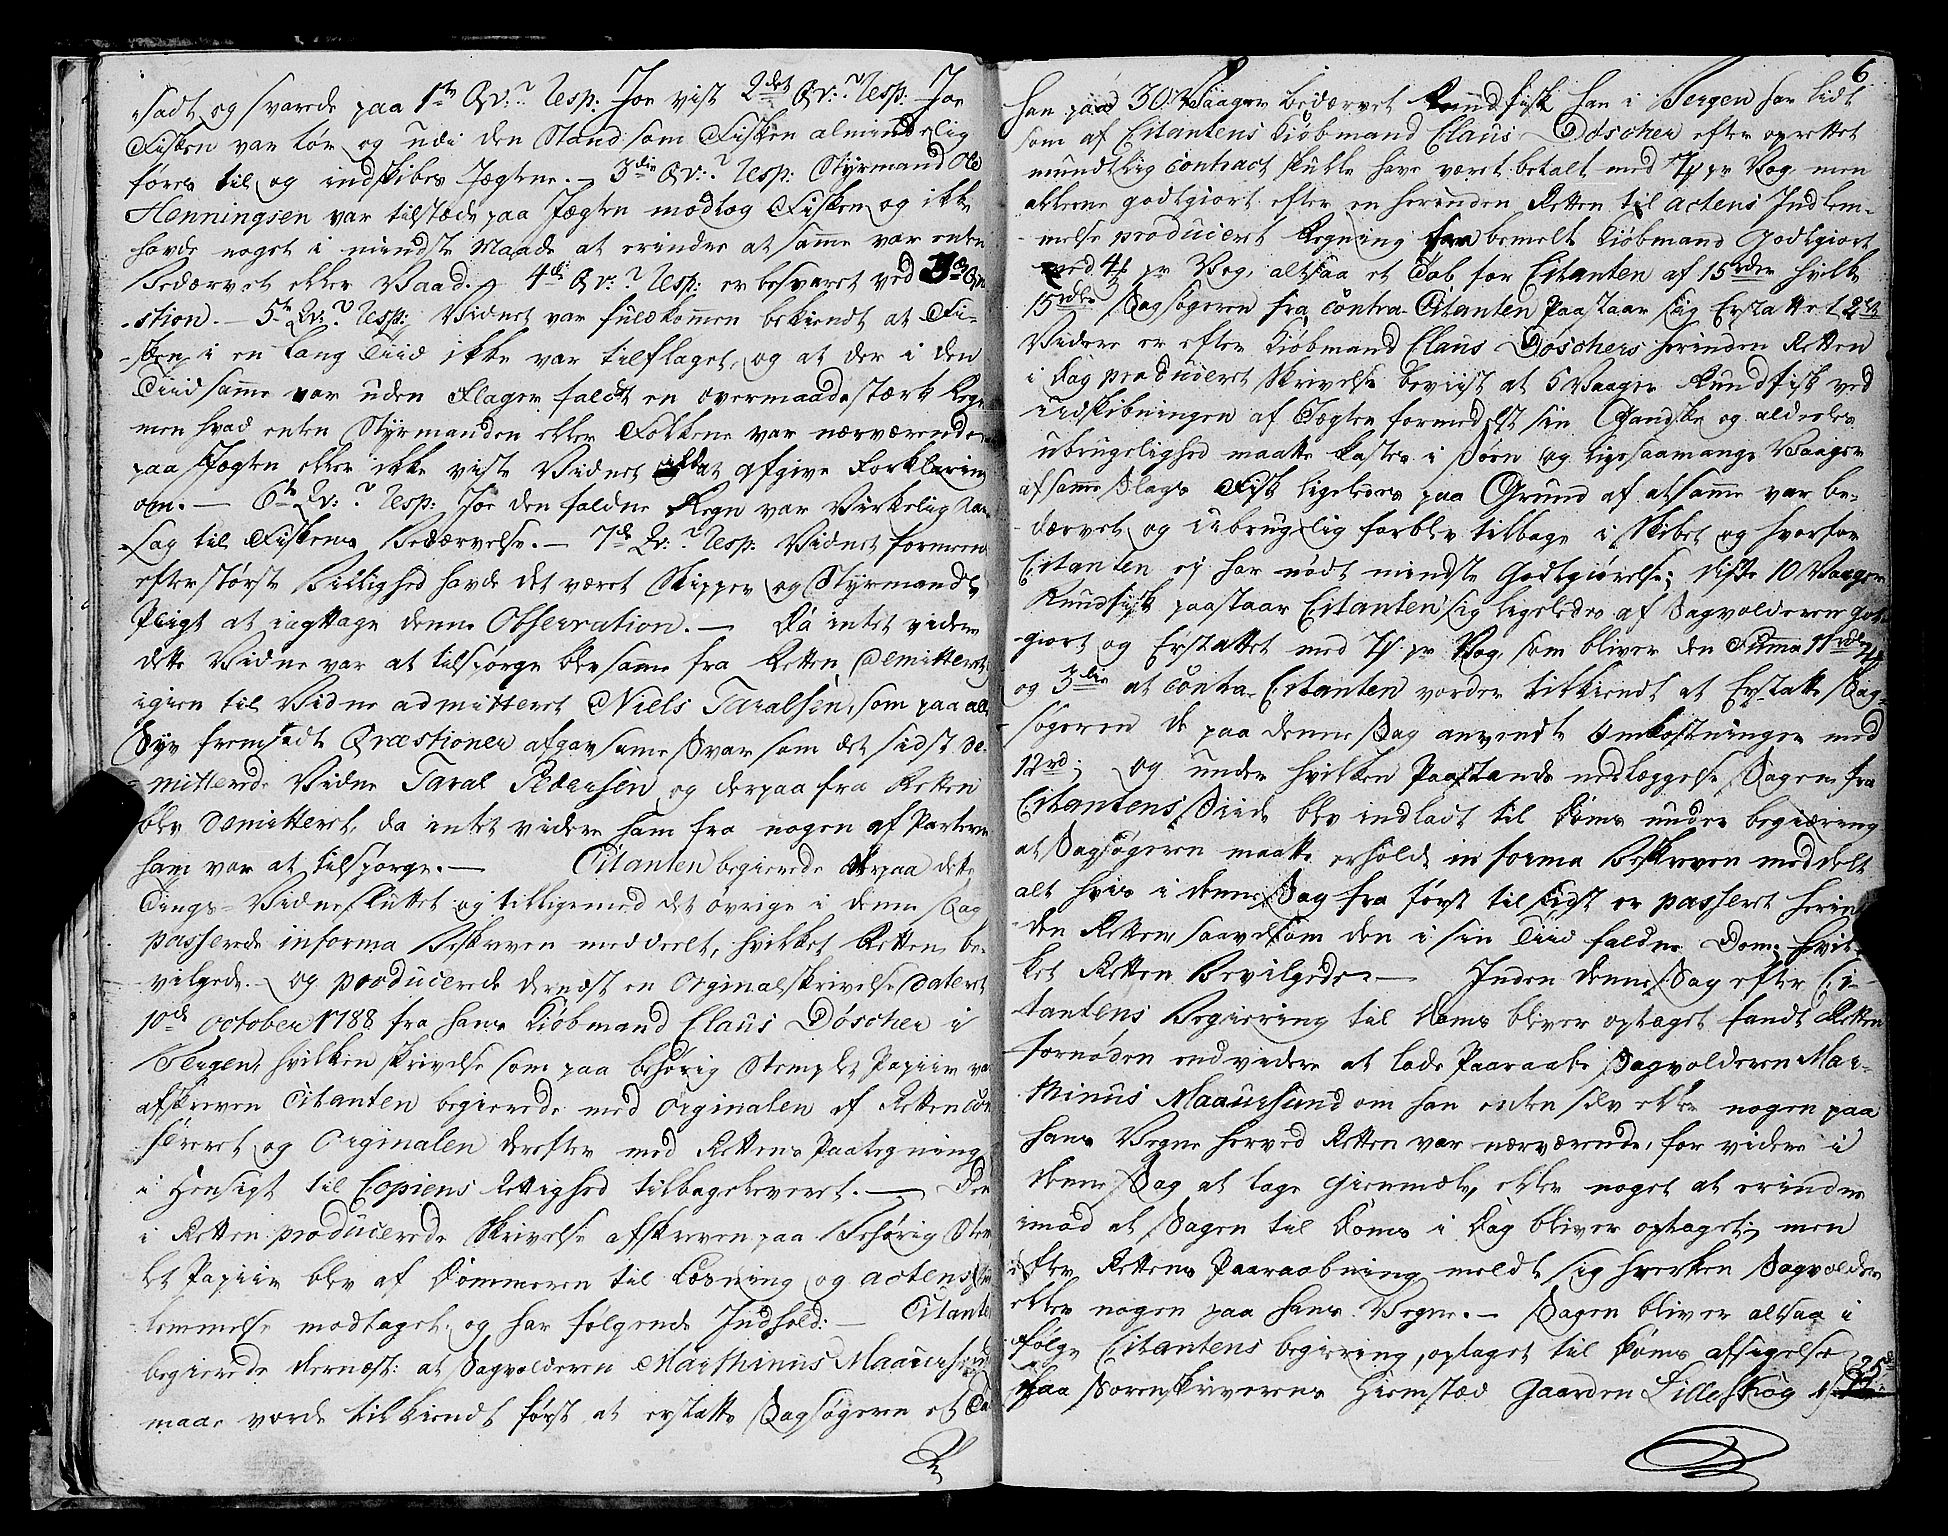 sadt og svarede paa 1te Qv:? Resp: Joe vist 2det Qv:? Resp: Joe
Fisken var tør og udi den Stand som Fisken almindelig
føres til og indskibes Jægtene. — 3die Qv:? Resp: Styrmand Ole
Henningsen var tilstæde paa Jægten modtog Fisken og ikke
havde noget i mindste Maade at erindre at samme var enten
Bedærvet eller Vaad. — 4de Qv:? Resp: er besvaret ved 3de Qve
-stion. — 5te Qv:? Resp: Vidnet var fuldkommen bekiendt at Fi-
-sken i en lang Tiid ikke var tilflaget, og at der i den
Tiid samme var uden Flager faldt en overmaade stærk Regn
men hvad enten Styrmanden eller Folkene var nærværende
paa Jægten eller ikke viste Vidnet at afgive Forklaring
om. — 6te Qv:? Resp: Joe den faldne Regn var Virkelig Aar-
sag til Fiskens Bedærvelse. — 7de Qv:? Resp: Vidnet formeen
efter størst Billighed havde det været Skipper og Styrmands
Pligt at iagttage denne Observation. — Da intet videre
dette Vidne var at tilspørge blev samme fra Retten Demitteret,
igien til Vidne admitteret Niels Taralsen, som paa alle
Syv fremsadte Qvæstioner afgav samme Svar som det sidst de-
-mitterede Vidne Taral Pedersen og derpaa fra Retten
blev demitteret, da intet videre ham fra nogen af Parterne
ham var at tilspørge. — Citanten begierede derpaa dette
Tings-Vidne sluttet og tilligemed det øvrige i denne Sag
passerede in forma Beskreven meddeelt, hvilket Retten be-
vilgede. — og producerede dernæst en Orginal skrivelse dateret
10de October 1788 fra hans Kiøbmand Claus Döscher i
Bergen, hvilken skrivelse som paa behørig Stemplet Papiir var
afskreven Citanten begierede med Orginalen af Retten Con-
fereret og Orginalen derefter med Rettens Paategning
i Hensigt til Copiens Rettighed tilbageleveret. — Den
i Retten producerede Skrivelse afskreven paa behørig Stem
let Papiir blev af Dommeren til Læsning og actens Ind
lemmelse modtaget og har følgende Indhold: — Citanten
begierede dernæst: at Sagvolderen Marthinus Maaursund
maae vorde tilkiendt først at erstatte Sagsøgeren et Tab
6
han paa 30 Vaager bedærvet Rundfisk han i Bergen har lidt
som af Citantens Kiøbmand Claus Döscher efter oprettet
mundtlig contract skulle have været betalt med 7 pr Vog, men
alleene godtgiort efter en herinden Retten til actens Indlem-
-melse produceret Regning fra bemelte Kiøbmand Godtgiort
med 4 pr Vog, altsaa et Tab for Citanten af 15 rdr hvilke
15 rdr Sagsøgeren fra Contra-Citanten Paastaar sig Erstattet 2det
Videre er efter Kiøbmand Claus Döschers herinden Retten
i Dag produceret Skrivelse beviist at 5 Vaager Rundfisk ved
udskibningen af Jægten formedelst sin Gandske og aldeeles
ubrugelighed maatte kastes i Søen og ligesaa mange Vaager
af samme Slags Fisk ligeledes paa Grund af at samme var be-
dærvet og ubrugelig forblev tilbage i Skibet og hvorfor
Citanten ej har nødt mindste Godtgiørelse; disse 10 Vaager
Rundfisk paastaar Citanten sig ligeledes af Sagvolderen God-
giort og Erstattet med 7 pr Vog, som bliver den Suma 11 rdr
og 3die at Contra-Citanten vorder tilkiendt at Erstatte Sag-
søgeren de paa denne Sag anvendte Omkostninger med
12 rd; og under hvilken Paastands nedlæggelse Sagen fra
Citantens Siide blev indladt til Doms under begiæring
at Sagsøgeren maatte erholde in forma Beskreven meddelt
alt hvis i denne Sag fra først til sidst er passeret herin-
den Retten saavelsom den i sin Tiid faldne Dom; hvil-
ket Retten Bevilgede — Inden denne Sag efter Ci-
tantens Begiering til Doms bliver optaget fandt Retten
fornøden endvidere at lade Paaraabe Sagvolderen Mar-
thinus Maaursund om han enten selv eller nogen paa
hans Vegne herved Retten var nærværende, for videre i
denne Sag at tage Giennmæle, eller noget at erindre
imod at Sagen til Doms i Dag bliver optaget; men
efter Rettens Paaraabning meldte sig hverken Sagvolderen
eller nogen paa hans Vegne. — Sagen bliver altsaa i
følge Citantens begiering, optaget til Doms afsigelse
paa Sorenskriverens Hiemstæd Gaarden Lilleskog 25de